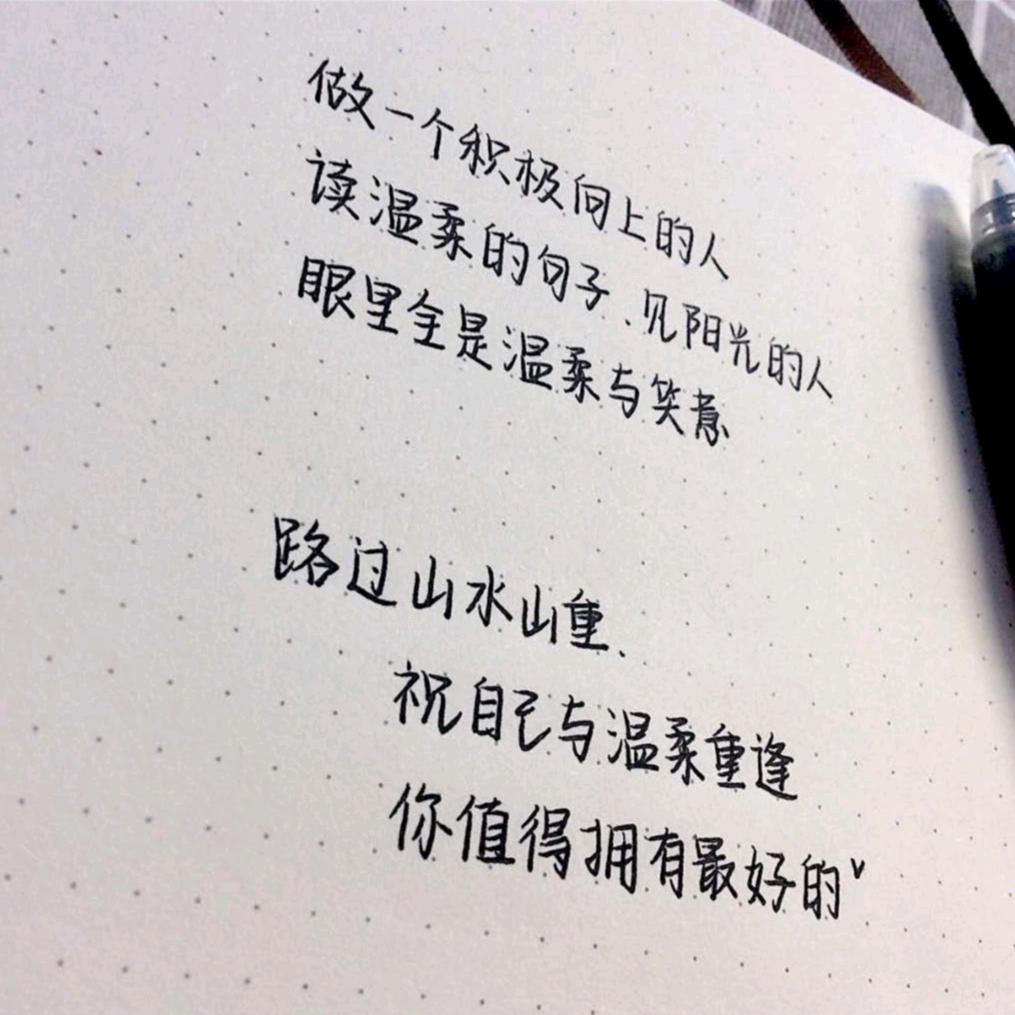 做一个积极向上的人
读温柔的句子、见阳光的人
眼里全是温柔与笑意
路过山水山重、
祝自己与温柔重逢
你值得拥有最好的